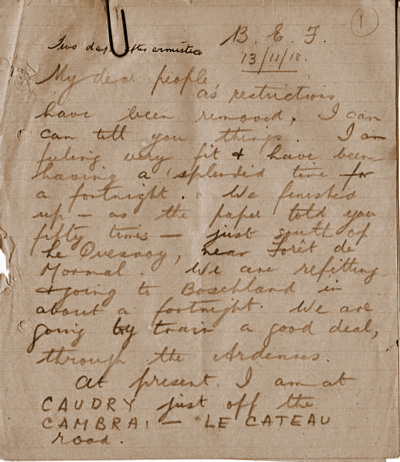 1
B. E. F.
Two days after armistice
13/11/18.
My dear people
as restrictions
have been removed, I can
can tell you things. I am
feeling very fit & have been
having a splendid time for
a fortnight. We finished
up - as the paper told you
fifty times - just south of
he Quesnoy, near Forêt de
Mormal. We are refitting
& going to Boscheland in
about a fortnight. We are
going by train a good deal,
through the Ardennes.
At present I am at
CAUDRY just off the
CAMBRAI - LE CATEAU
road.